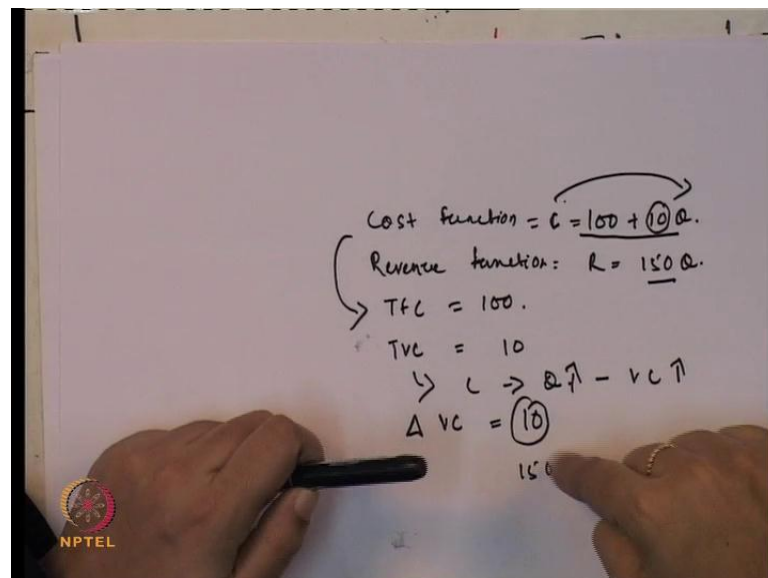 Cost function = C = 100 + 10 Q.
Revenue function: R = 150 Q.
TFC = 100.
TVC = 10
↳ C → Q↑ - VC↑
Δ VC = 10
150
NPTEL